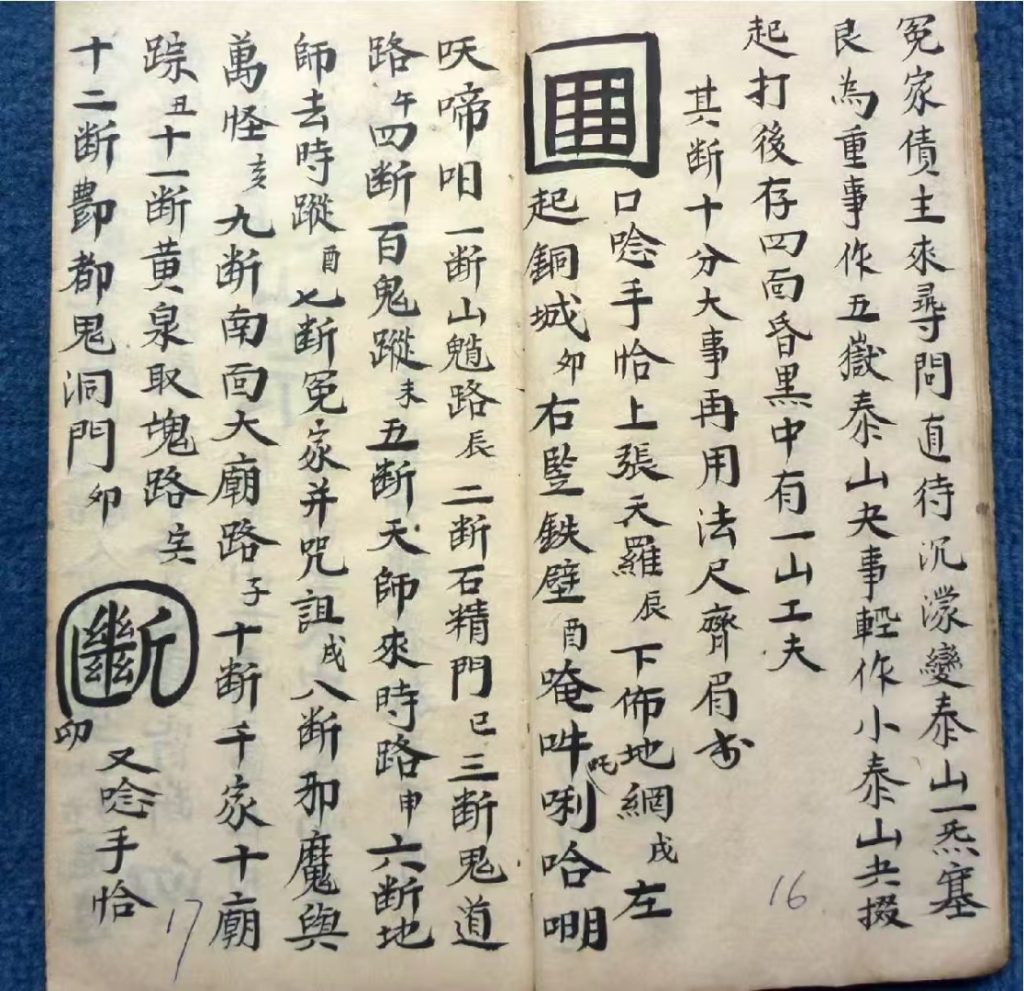 冤家債主來尋問直待沉濛變泰山一炁塞
良為重事作五嶽泰山夬事輕作小泰山共掇
起打後存四面昏黑中有一山工夫
其断十分大事再用法尺齊眉
口唸手恰上張天羅辰下佈地網戌左
起銅城卯右豎鉄壁酉唵吽吒唎哈𠵇
呋啼呬一断山魈路辰二断石精門巳三断鬼道
路午四断百鬼蹤未五断天師來時路申六断地
師去時蹤酉七断冤家并咒詛戌八断邪魔與
萬怪亥九断南面大廟路子十断千家十廟
踪丑十一断黄泉取塊路寅
十二断酆都鬼洞門卯
斷
卯
又唸手恰
16
17